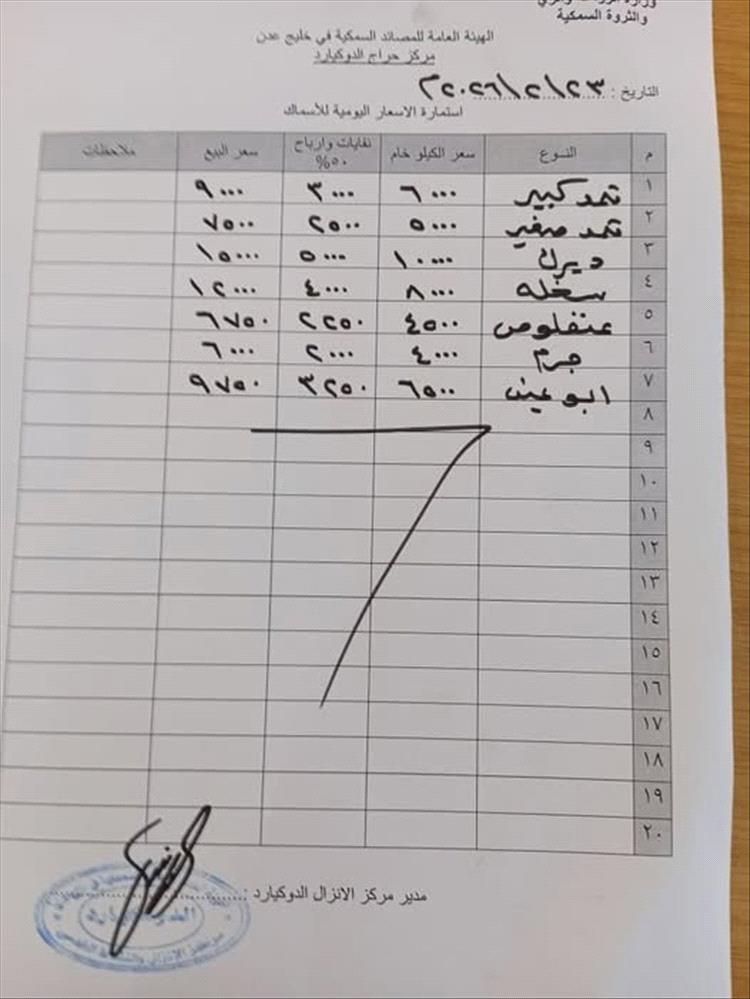 والثروة السمكية
الهيئة العامة للمصائد السمكية في خليج عدن
مركز حراج الدوكيارد
التاريخ : ٢٣/٢/٢٠٢٦م
استمارة الاسعار اليومية للأسماك
م النوع سعر الكيلو خام نفايات وارباح ٥٠% سعر البيع ملاحظات
١ ثمد كبير ٦٠٠٠ ٣٠٠٠ ٩٠٠٠
٢ ثمد صغير ٥٠٠٠ ٢٥٠٠ ٧٥٠٠
٣ ديرك ١٠٠٠٠ ٥٠٠٠ ١٥٠٠٠
٤ سخله ٨٠٠٠ ٤٠٠٠ ١٢٠٠٠
٥ عنفلوص ٤٥٠٠ ٢٢٥٠ ٦٧٥٠
٦ جرم ٤٠٠٠ ٢٠٠٠ ٦٠٠٠
٧ ابو عين ٦٥٠٠ ٣٢٥٠ ٩٧٥٠
٨
٩
١٠
١١
١٢
١٣
١٤
١٥
١٦
١٧
١٨
١٩
٢٠
مدير مركز الانزال الدوكيارد :